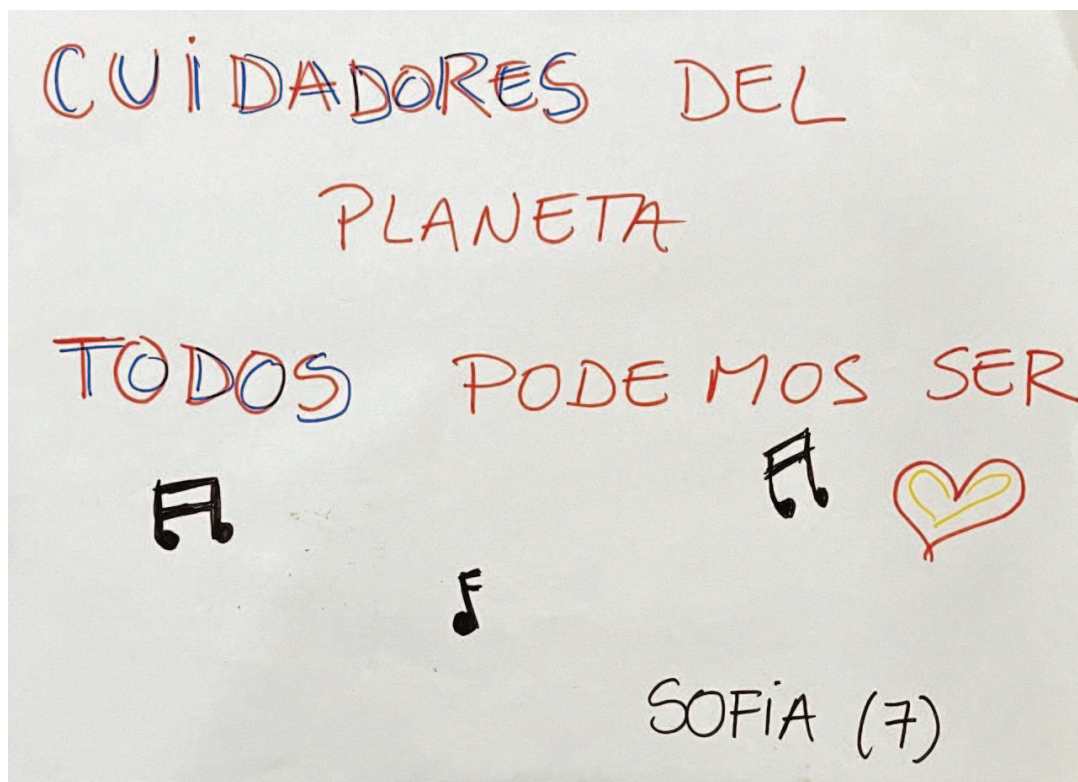 CUiDADORES DEL
PLANETA
TODOS PODEMOS SER
SOFiA (7)